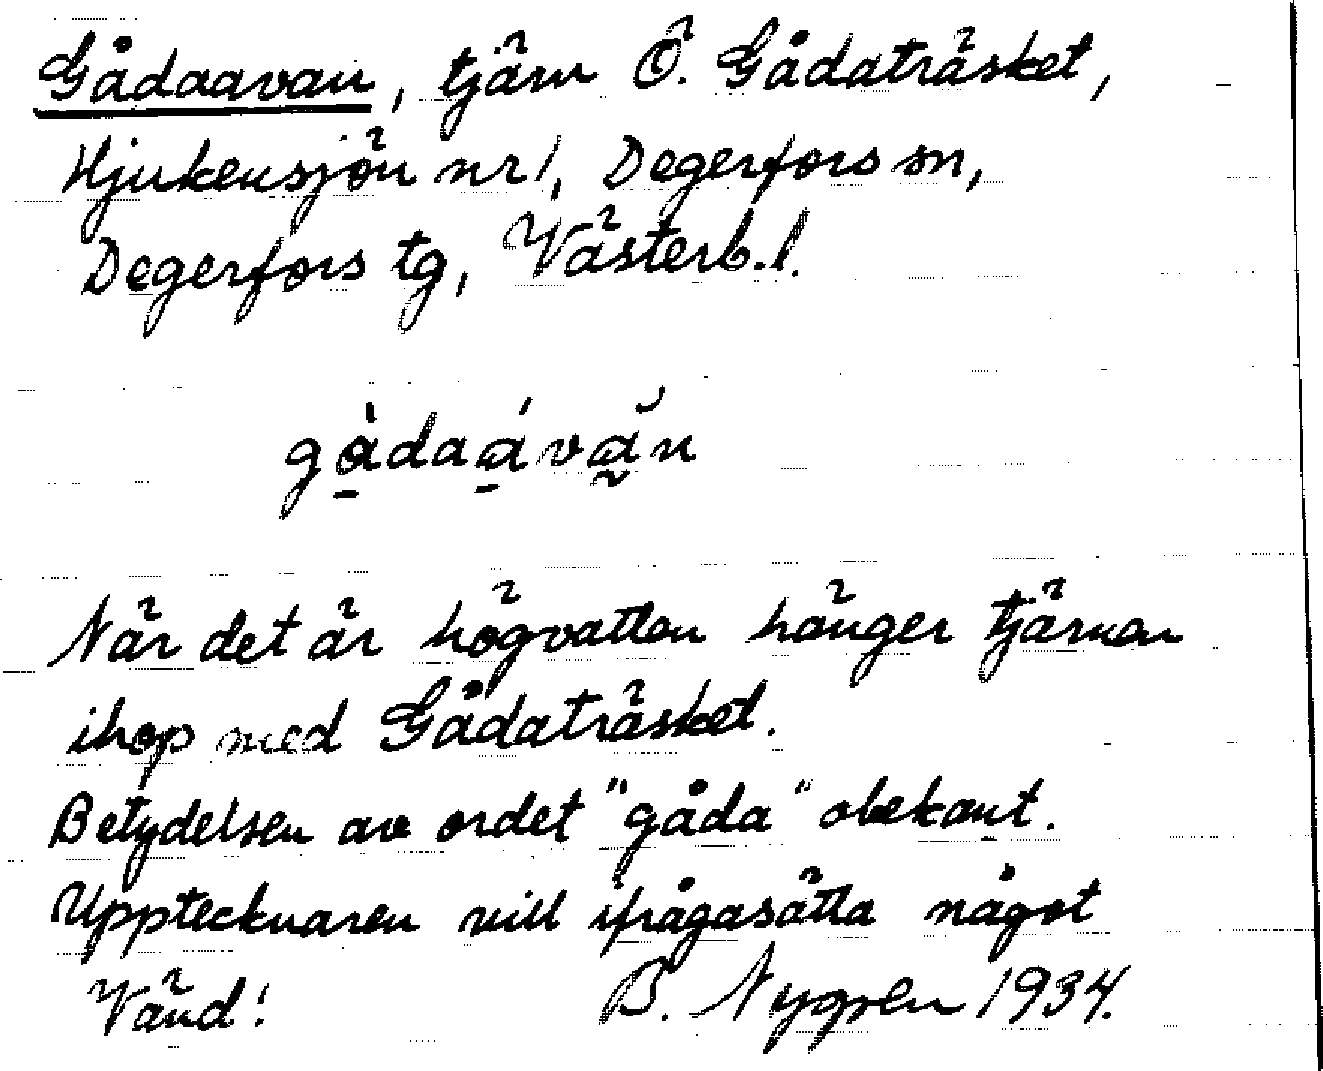 Gådaavan, tjärn Ö. Gådaträsket,
Hjukensjön nr 1, Degerfors sn,
Degerfors tg, Västerb. l.
gà̱daá̱vă̰n
När det är högvatten hänger tjärnen
ihop med Gådaträsket.
Betydelsen av ordet "gåda" obekant.
Upptecknaren vill ifrågasätta något
Vänd! B. Nygren 1934.